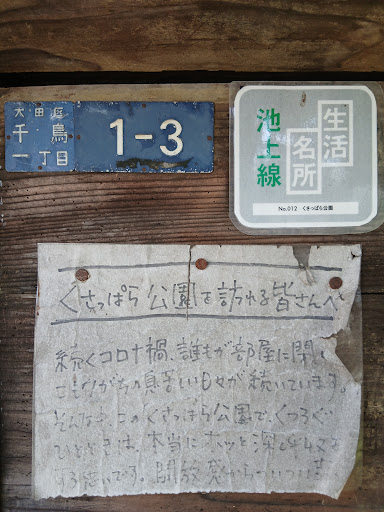 大田区
千鳥
一丁目
1-3
生活
名所
池上線
No.012 くさっぱら公園
くさっぱら公園を訪れる皆さんへ
続くコロナ禍、誰もが部屋に閉じ
こもりがちの息苦しい日々が続いています。
そんな中、このくさっぱら公園で、くつろぐ
ひとときは、本当にホッと
する想いです。開放感からついつい